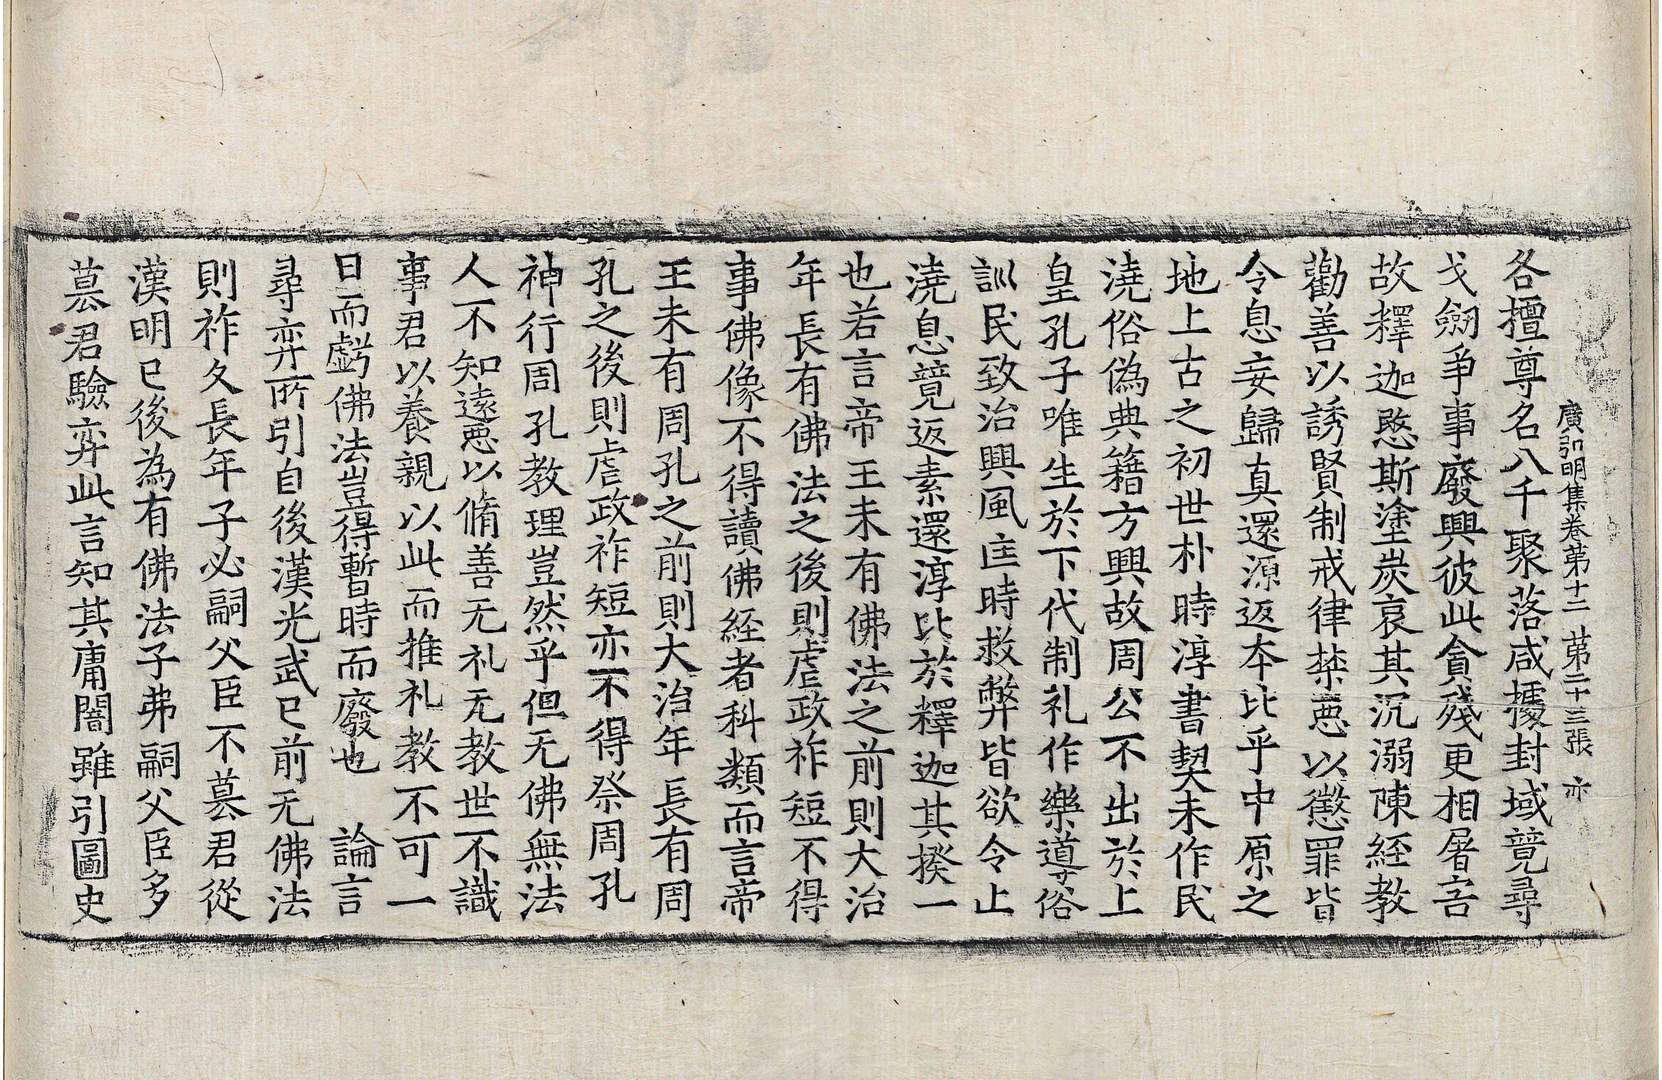 廣弘明集卷第十二 第二十三張 亦
各擅尊名八千聚落咸據封域競尋
戈劒爭事廢興彼此貪殘更相屠害
故釋迦愍斯塗炭哀其沉溺陳經教
勸善以誘賢制戒律禁惡以懲罪皆
令息妄歸真還源返本比乎中原之
地上古之初世朴時淳書契未作民
澆俗偽典籍方興故周公不出於上
皇孔子唯生於下代制礼作樂導俗
訓民致治興風匡時救弊皆欲令止
澆息競返素還淳比於釋迦其揆一
也若言帝王未有佛法之前則大治
年長有佛法之後則虐政祚短不得
事佛像不得讀佛經者科類而言帝
王未有周孔之前則大治年長有周
孔之後則虐政祚短亦不得祭周孔
神行周孔教理豈然乎但无佛無法
人不知遠惡以脩善无礼无教世不識
事君以養親以此而推礼教不可一
日而虧佛法豈得暫時而廢也 論言
尋弈所引自後漢光武已前无佛法
則祚久長年子必嗣父臣不篡君從
漢明已後為有佛法子弗嗣父臣多
篡君驗弈此言知其庸闇雖引圖史